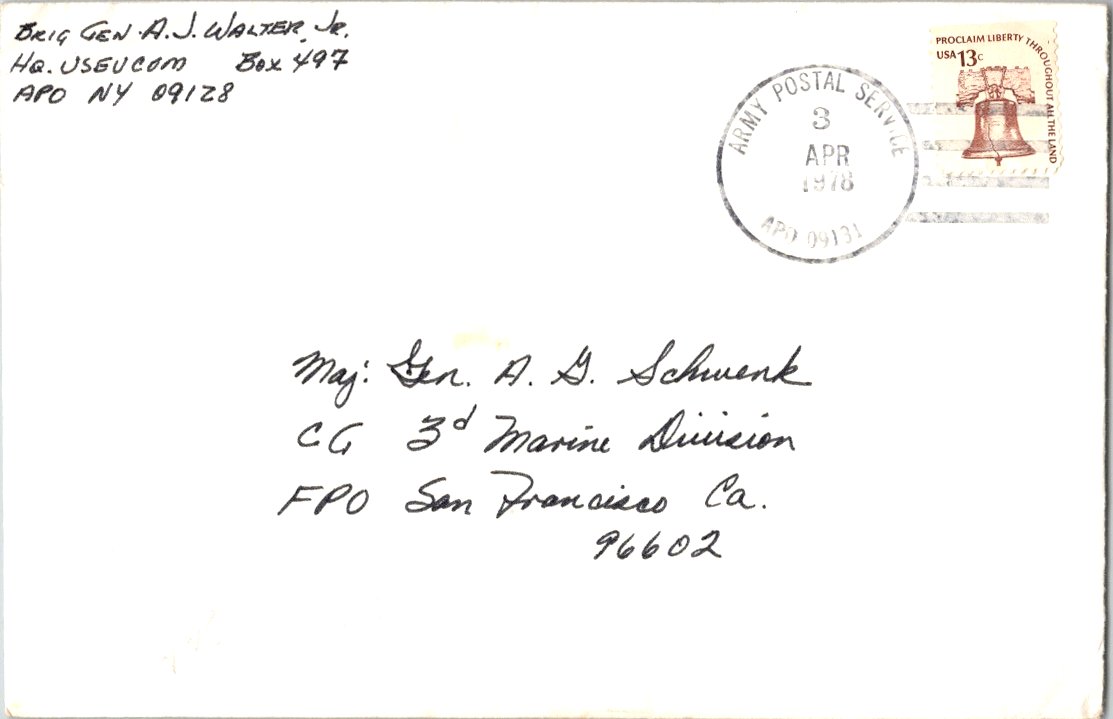 Brig Gen. A. J. Walter, Jr.
Hq. USEUCOM Box 497
APO NY 09128
PROCLAIM LIBERTY THROUGHOUT ALL THE LAND
USA 13c
ARMY POSTAL SERVICE
3
APR
1978
APO 09131
Maj. Gen. A. G. Schwenk
CG 3d Marine Division
FPO San Francisco Ca.
96602